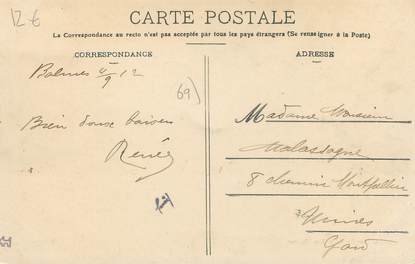 12 €
CARTE POSTALE
La Correspondance au recto n'est pas acceptée par tous les pays étrangers (Se renseigner à la Poste)
CORRESPONDANCE
ADRESSE
Balmes 4/9 12
69)
Bien doux baisers
Renée
Madame Monsieur
Malassagne
8 chemin Montpellier
Nimes
Gard